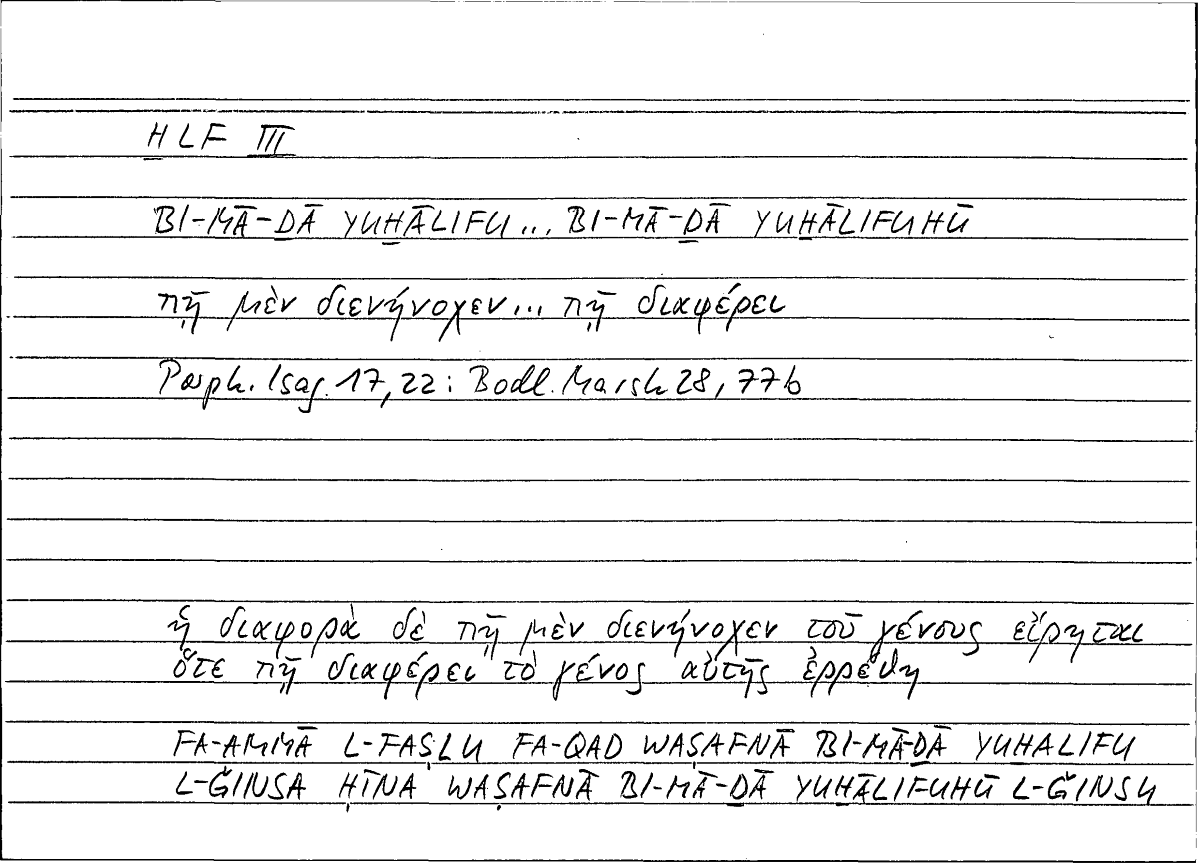 ḪLF III
BI-MĀ-ḎĀ YUḪĀLIFU... BI-MĀ-ḎĀ YUḪĀLIFUHŪ
πῇ μὲν διενήνοχεν... πῇ διαφέρει
Porph. Isag. 17,22: Bodl. Marsh 28, 77b
ἡ διαφορὰ δὲ πῇ μὲν διενήνοχεν τοῦ γένους εἴρηται
ὅτε πῇ διαφέρει τὸ γένος αὐτῆς ἐρρέθη
FA-AMMĀ L-FAṢLU FA-QAD WAṢAFNĀ BI-MĀ-ḎĀ YUḪALIFU
L-ǦINSA ḤĪNA WAṢAFNĀ BI-MĀ-ḎĀ YUḪĀLIFUHŪ L-ǦINSU